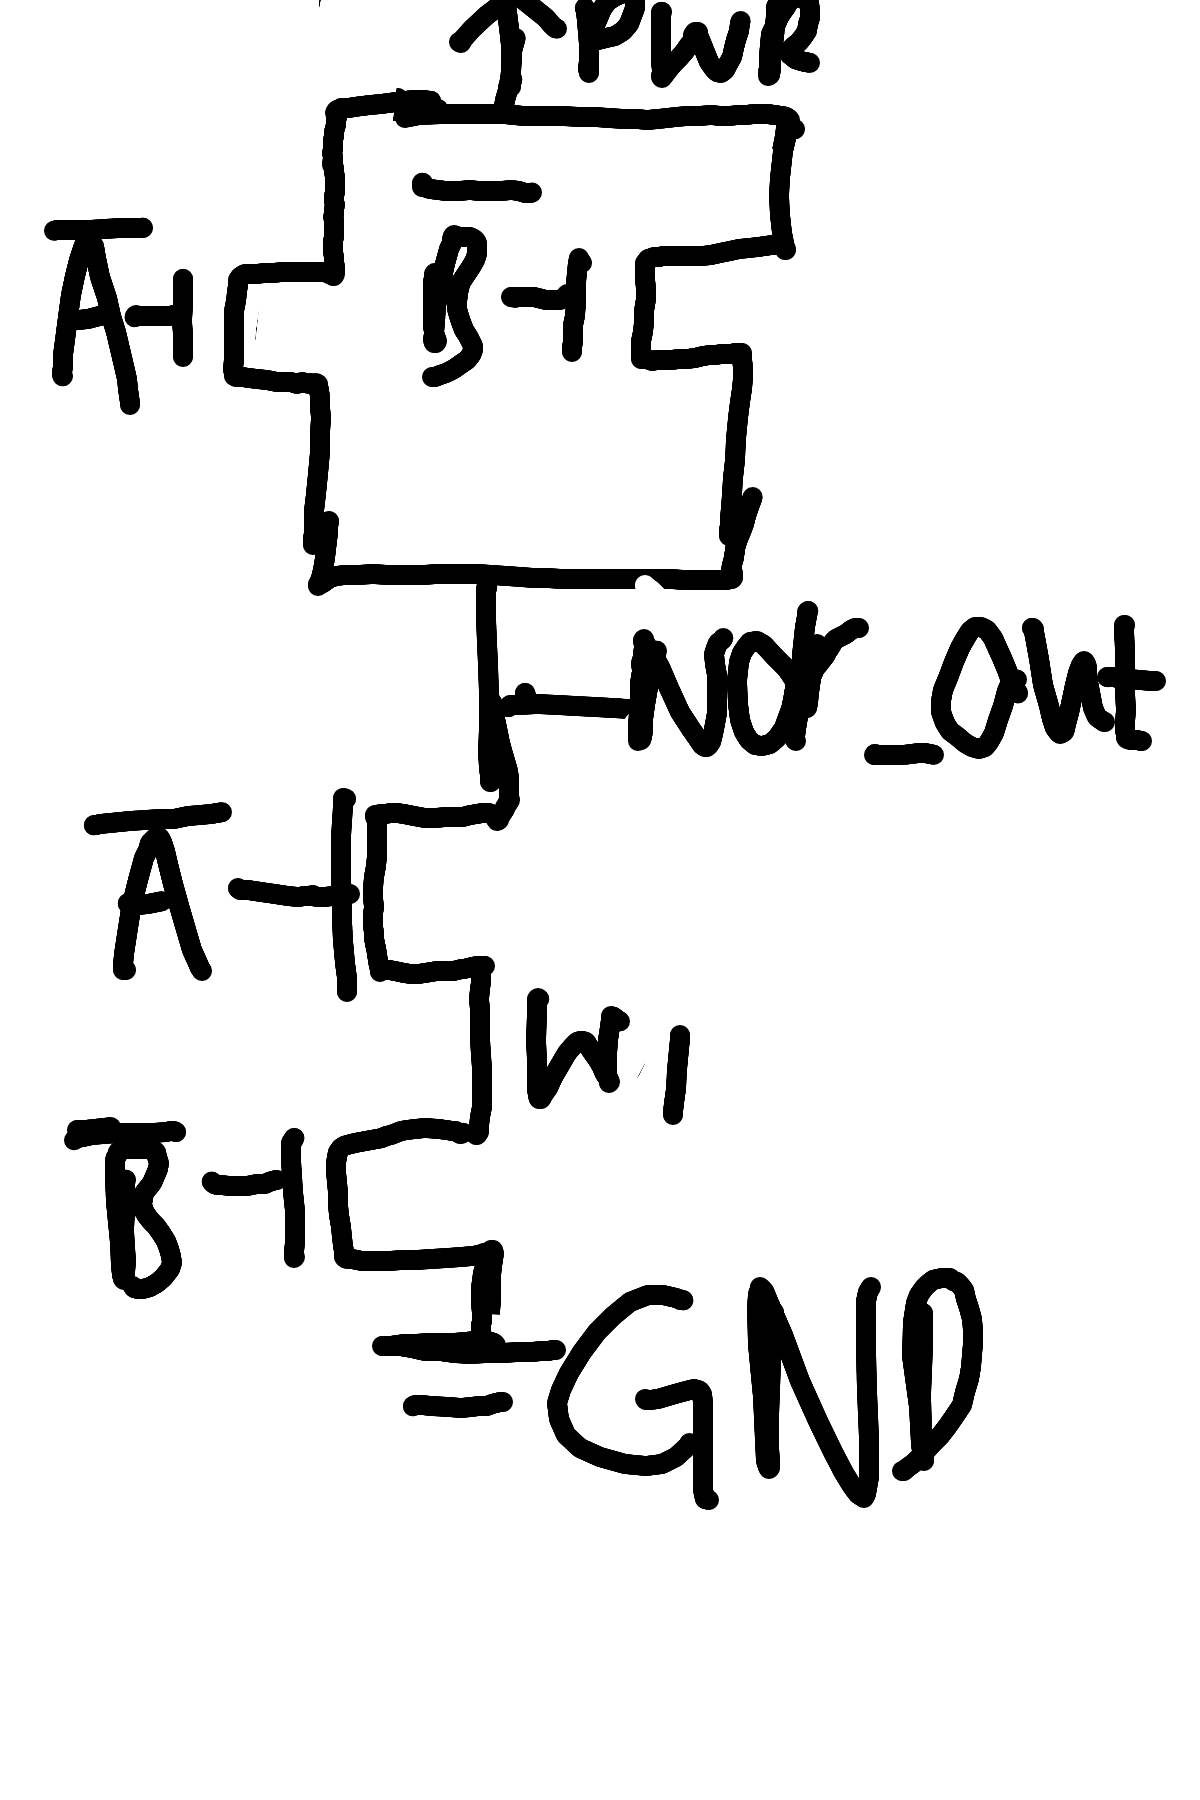 PWR
A̅
B̅
NOr_Out
A̅
W1
B̅
GND